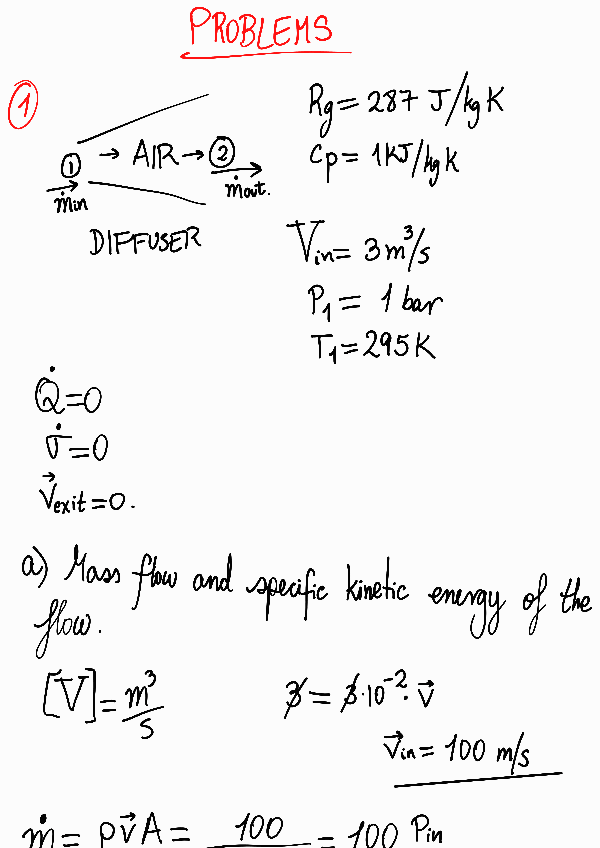 PROBLEMS
1
① → AIR → ②
ṁin
ṁout.
DIFFUSER
Rg = 287 J/kg K
Cp = 1KJ/kg K
Vin = 3 m³/s
P₁ = 1 bar
T₁ = 295 K
Q̇ = 0
σ̇ = 0
v⃗exit = 0.
a) Mass flow and specific kinetic energy of the
flow.
[V] = m³/s
3 = 3·10⁻²· v⃗
v⃗in = 100 m/s
ṁ = ρv⃗A = 100 = 100 Pin